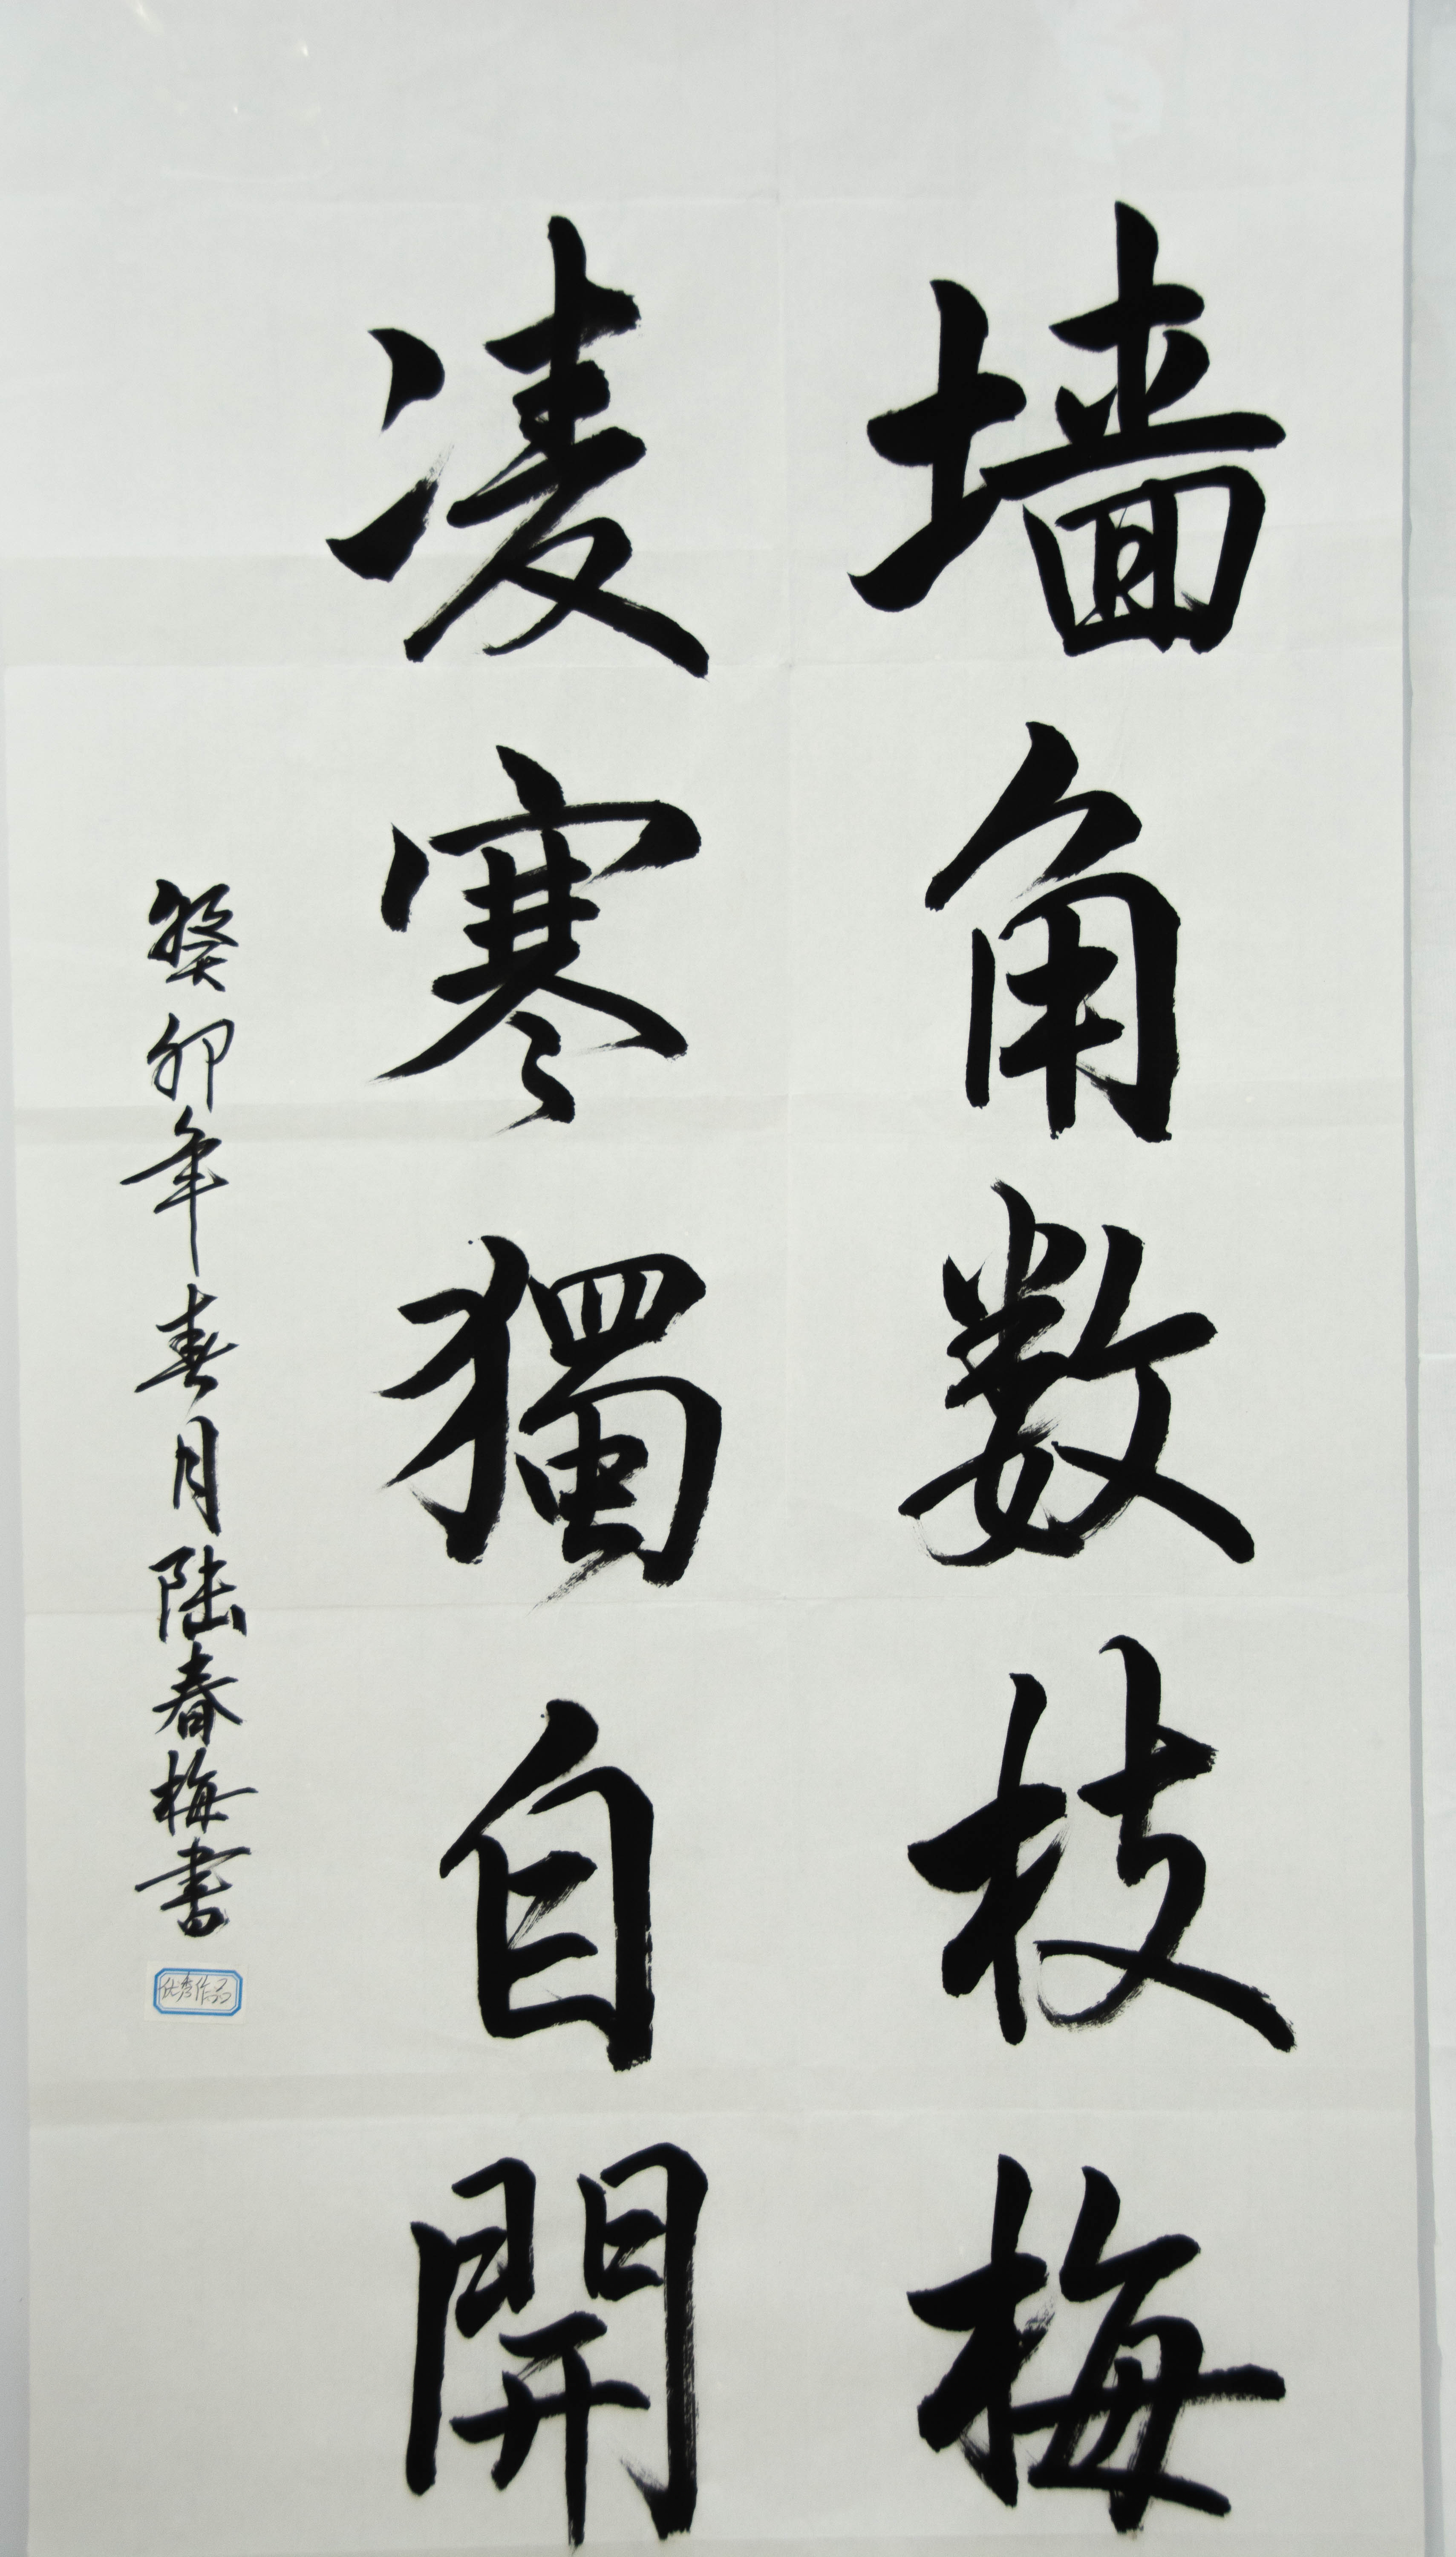 墙角数枝梅
凌寒獨自開
癸卯年春月陆春梅書
优秀作品